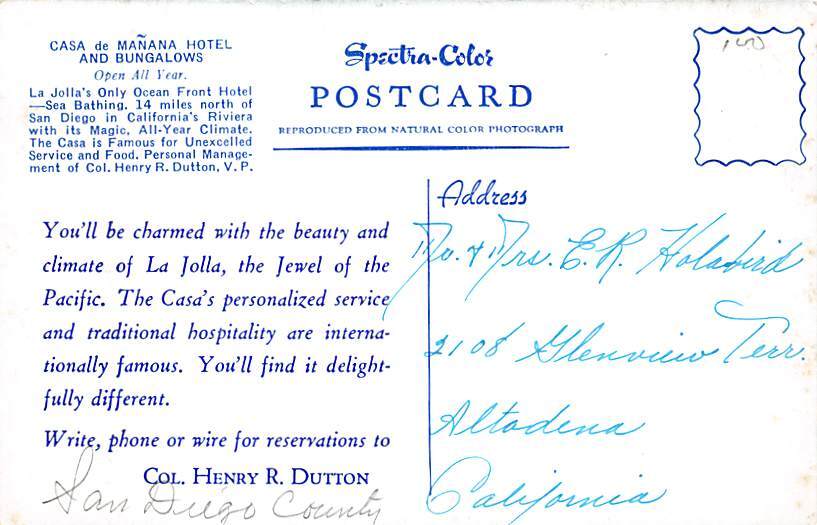 CASA de MAÑANA HOTEL
AND BUNGALOWS
Open All Year.
La Jolla's Only Ocean Front Hotel
—Sea Bathing. 14 miles north of
San Diego in California's Riviera
with its Magic, All-Year Climate.
The Casa is Famous for Unexcelled
Service and Food. Personal Manage-
ment of Col. Henry R. Dutton, V. P.
Spectra-Color
POSTCARD
REPRODUCED FROM NATURAL COLOR PHOTOGRAPH
You'll be charmed with the beauty and
climate of La Jolla, the Jewel of the
Pacific. The Casa's personalized service
and traditional hospitality are interna-
tionally famous. You'll find it delight-
fully different.
Write, phone or wire for reservations to
COL. HENRY R. DUTTON
San Diego County
Address
Mr. & Mrs. E. R. Holabird
2108 Glenview Terr.
Altadena
California